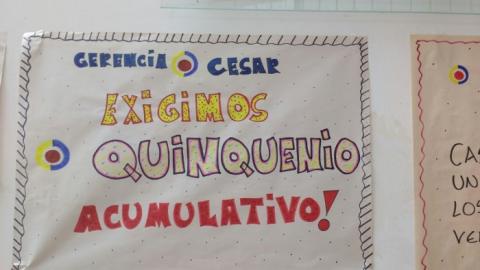 GERENCIA CESAR
EXIGIMOS
QUINQUENIO
ACUMULATIVO!
CAS
UN
LOS
VE